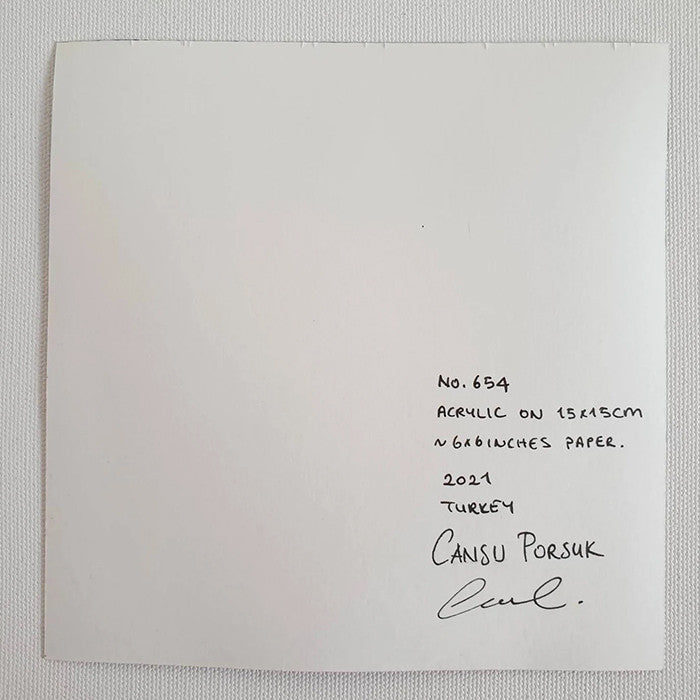 No. 654
ACRYLIC ON 15x15cm
~ 6x6 INCHES PAPER.
2021
TURKEY
CANSU PORSUK